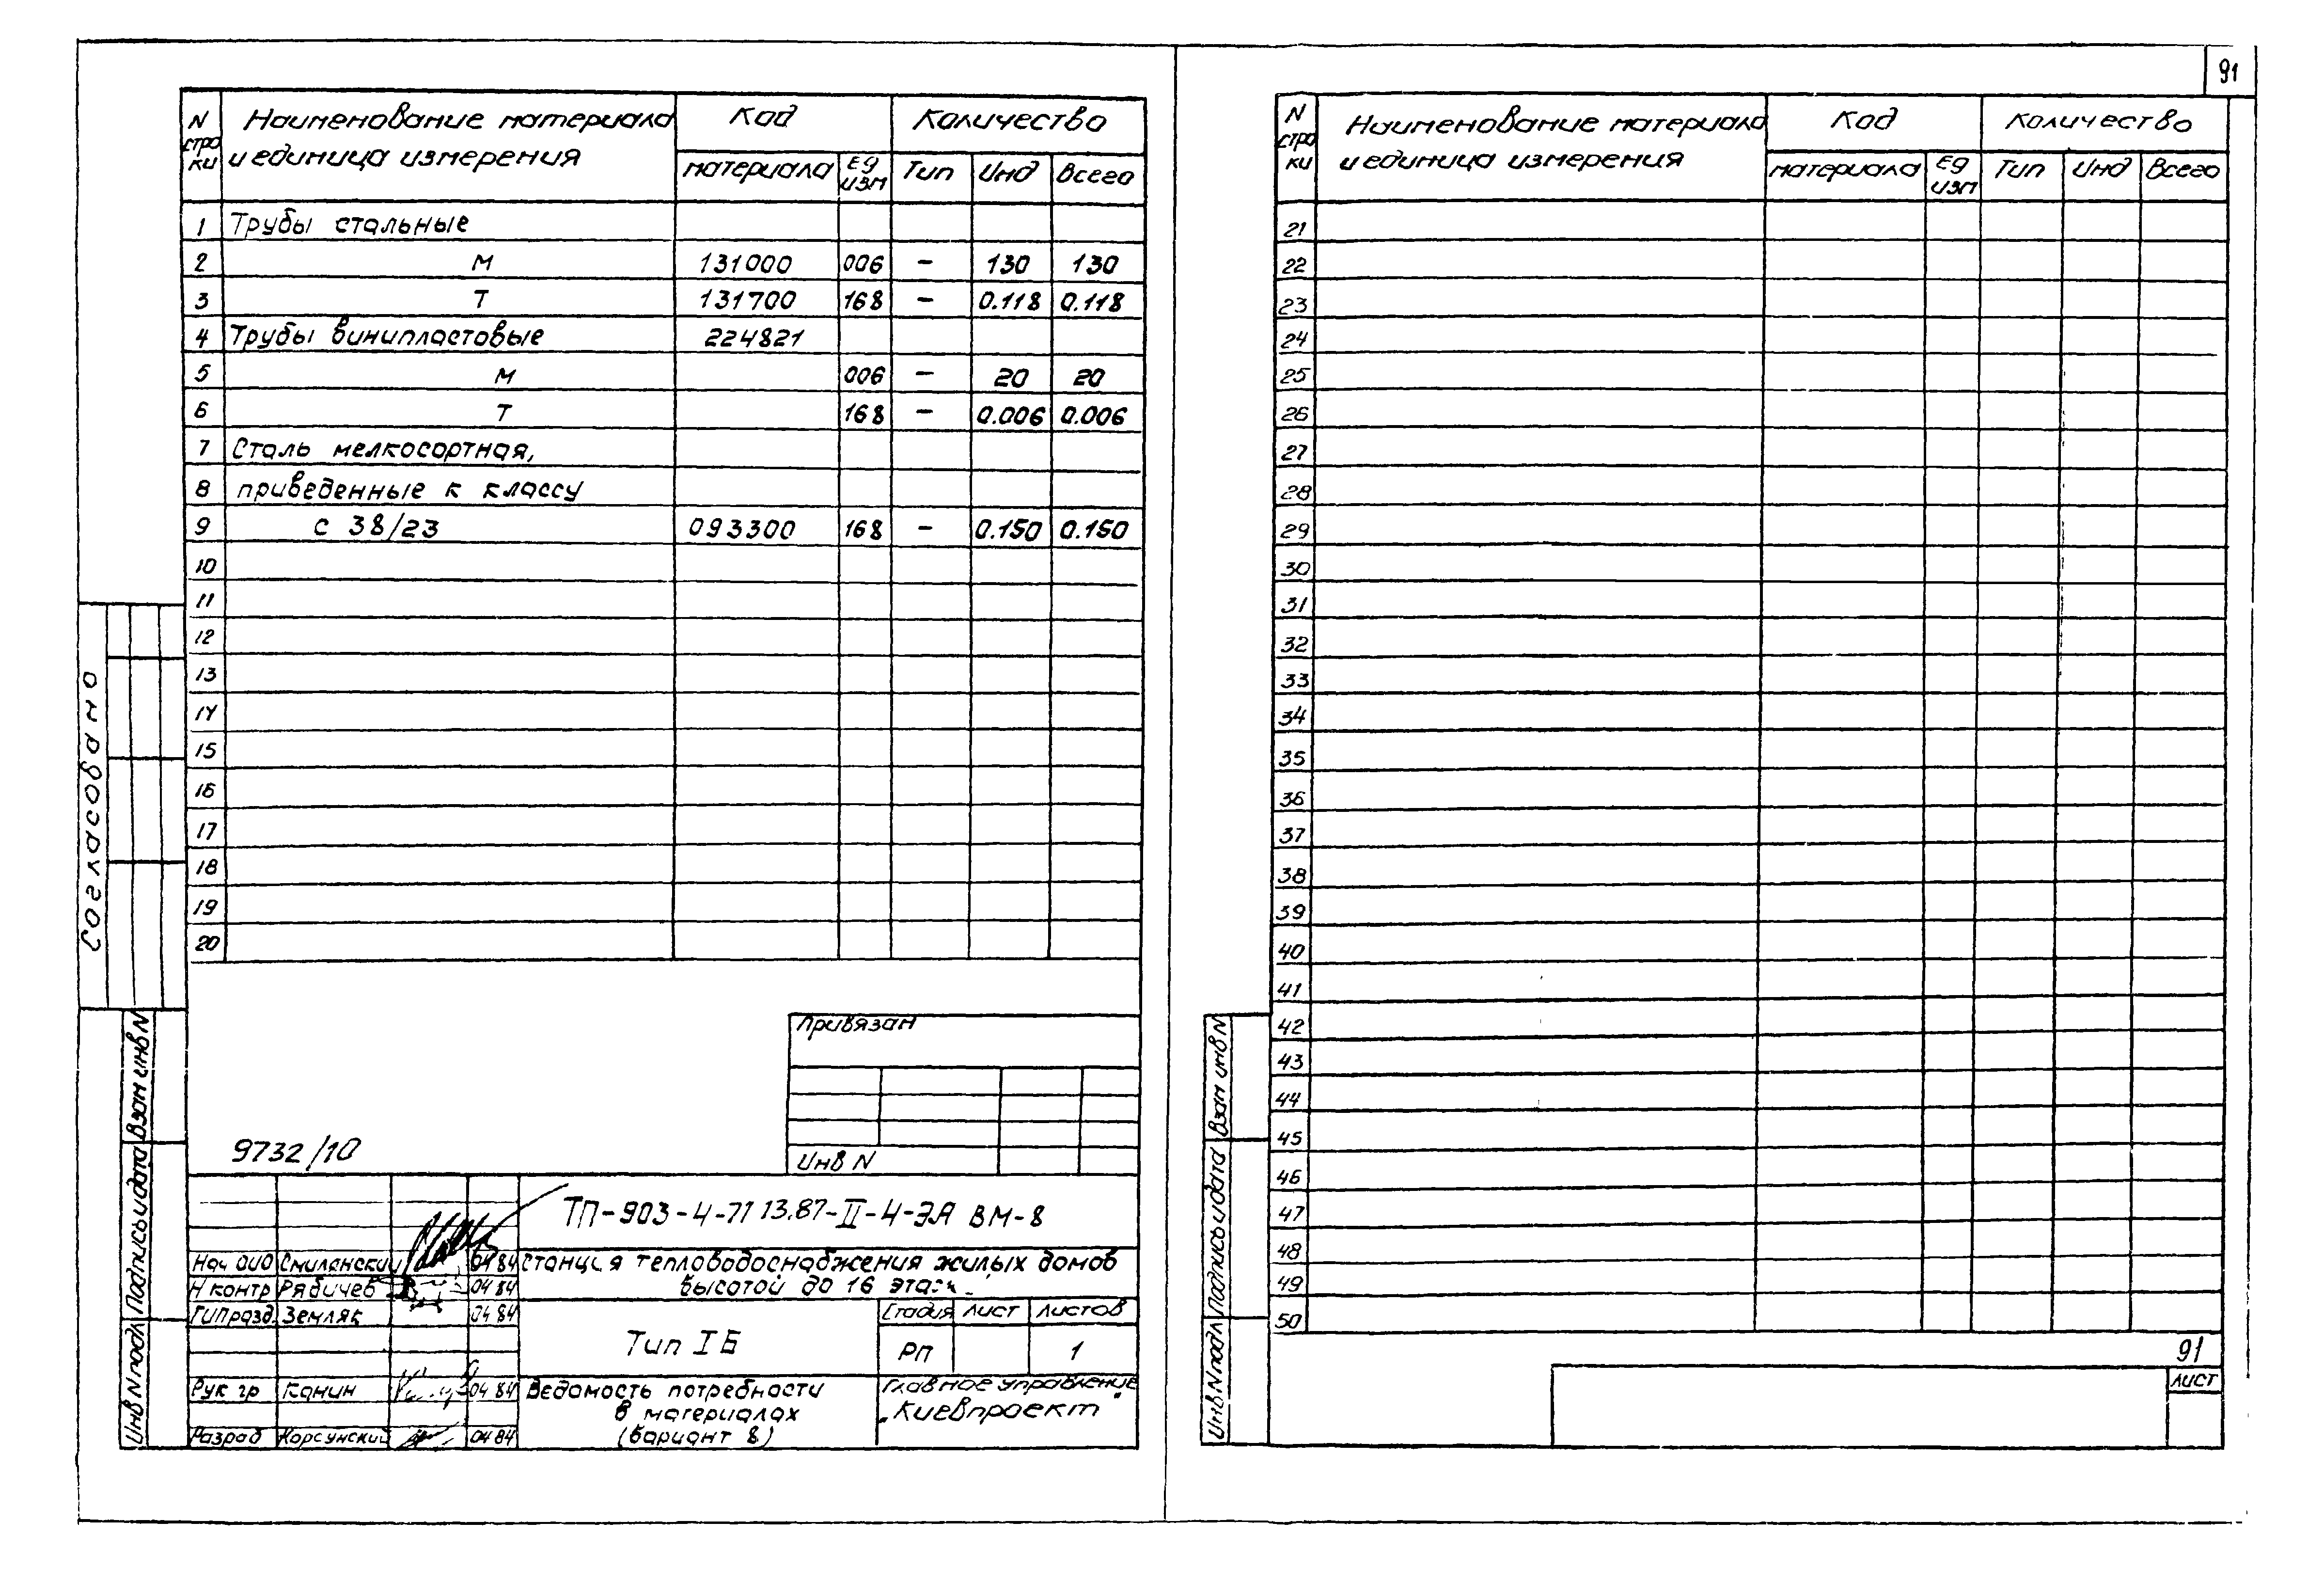 91
N строки Наименование материала и единица измерения Код Количество
материала Ед изм Тип Инд Всего
1 Трубы стальные
2 М 131000 006 – 130 130
3 Т 131700 168 – 0.118 0.118
4 Трубы винипластовые 224821
5 М 006 – 20 20
6 Т 168 – 0.006 0.006
7 Сталь мелкосортная,
8 приведенные к классу
9 с 38/23 093300 168 – 0.150 0.150
10
11
12
13
14
15
16
17
18
19
20
Согласовано
Взам инв N
Подпись и дата
Инв N подл
Привязан
Инв N
9732/10
ТП-903-4-71 13.87-II-4-ЭА ВМ-8
Нач ОИО Смилянский 04 84
Станция тепловодоснабжения жилых домов
высотой до 16
Н контр Рябичев 04 84
ГИПразд Земляк 04 84
Тип I Б
Стадия Лист Листов
РП 1
Рук гр Канин 04 84
Разраб Корсунский 04 84
Ведомость потребности
в материалах
(вариант 8)
Главное управление
„Киевпроект"
N строки Наименование материала и единица измерения Код Количество
материала Ед изм Тип Инд Всего
21
22
23
24
25
26
27
28
29
30
31
32
33
34
35
36
37
38
39
40
41
42
43
44
45
46
47
48
49
50
Взам инв N
Подпись и дата
Инв N подл
91
Лист